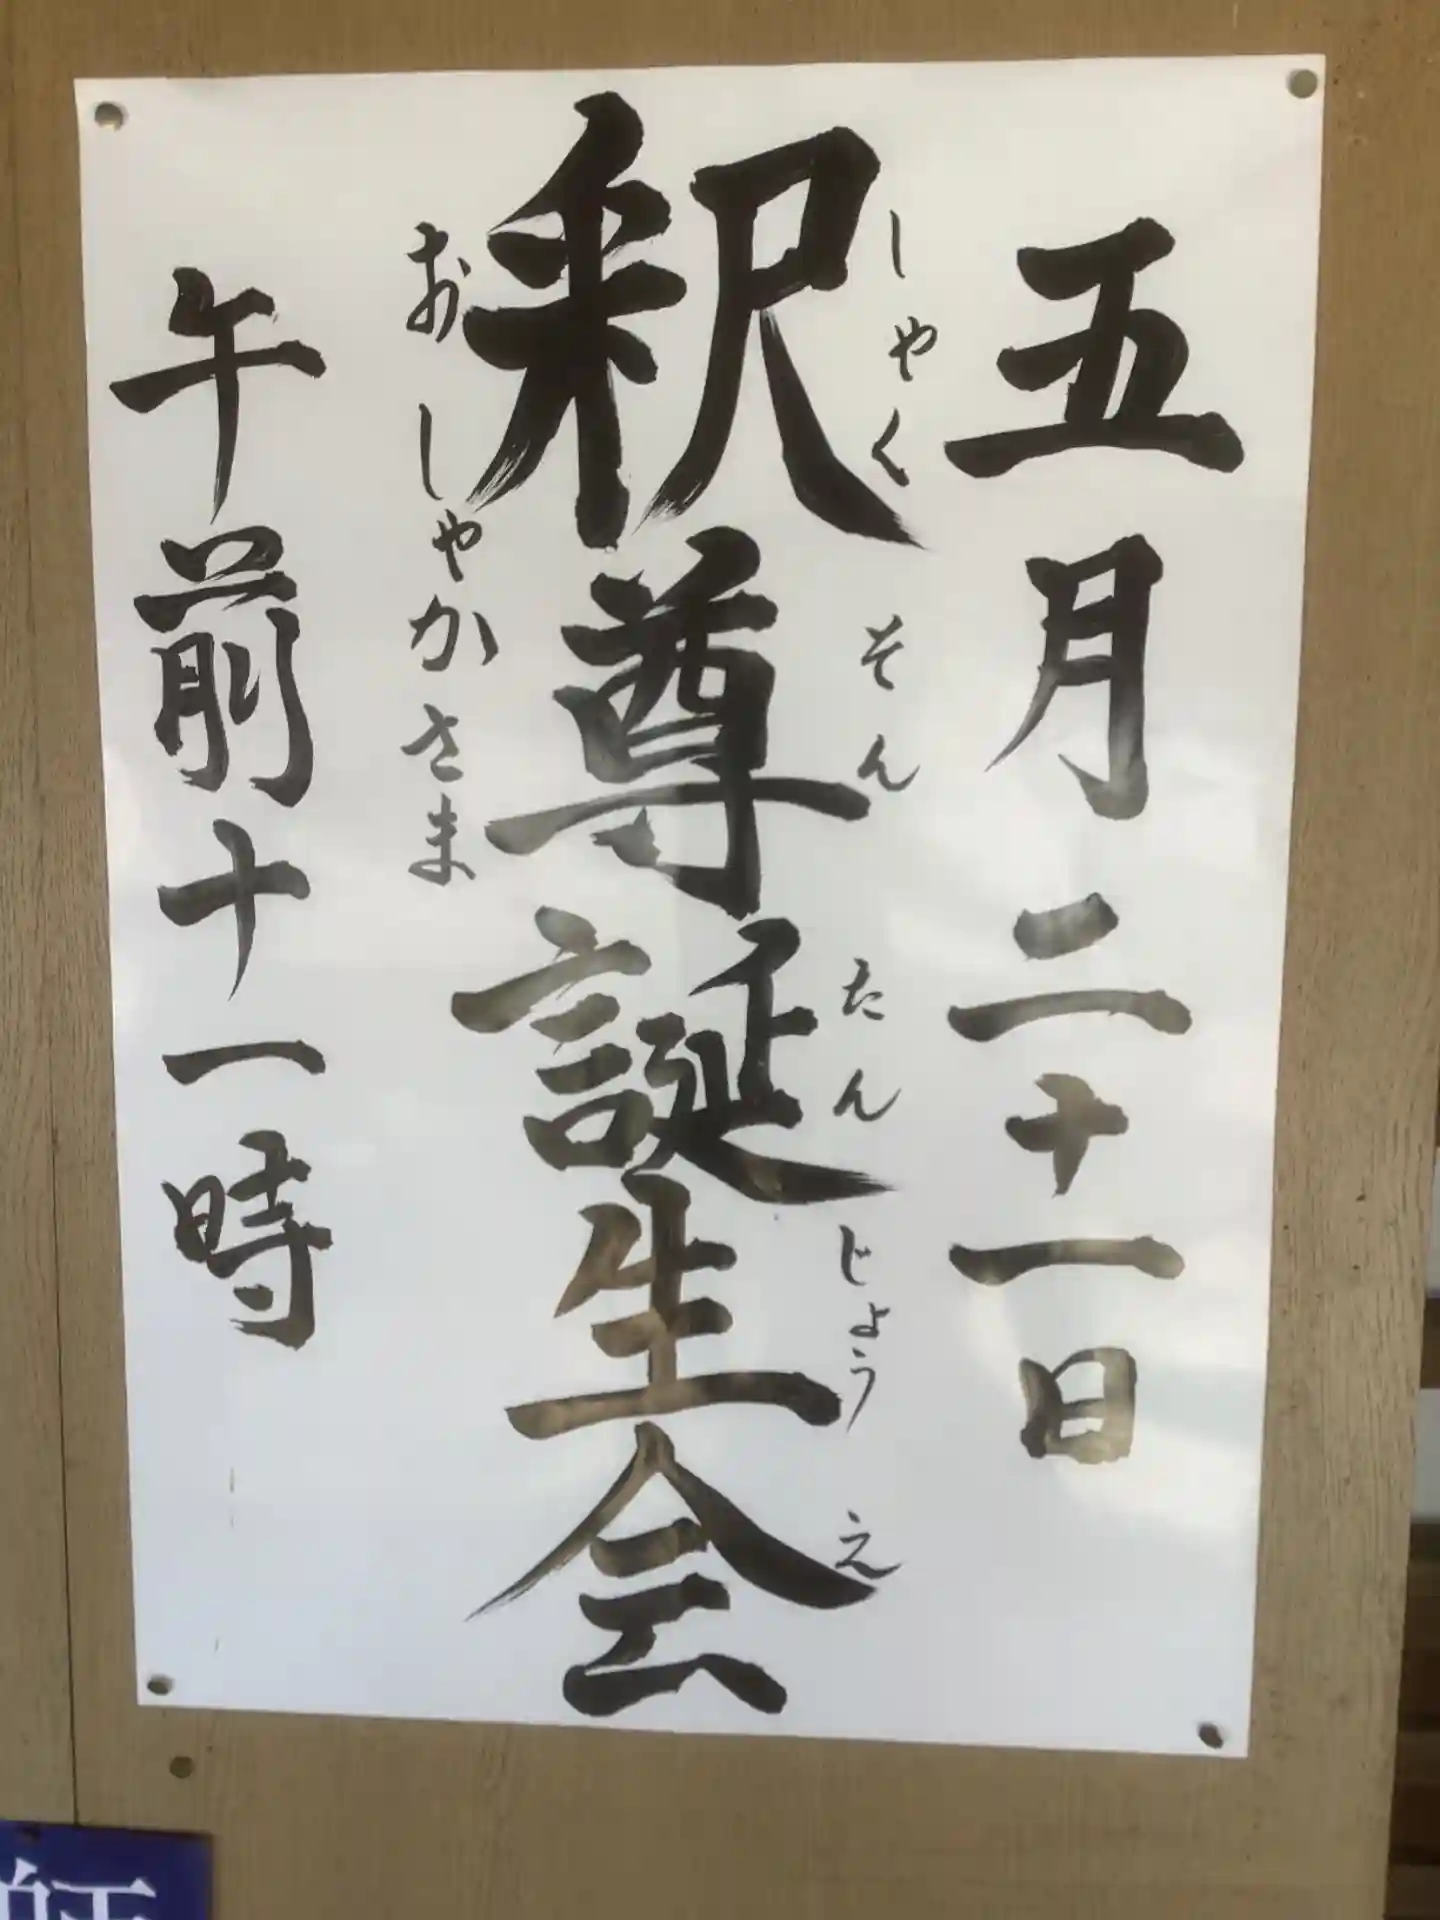 五月二十一日
しゃくそんたんじょうえ
釈尊誕生会
おしゃかさま
午前十一時
師